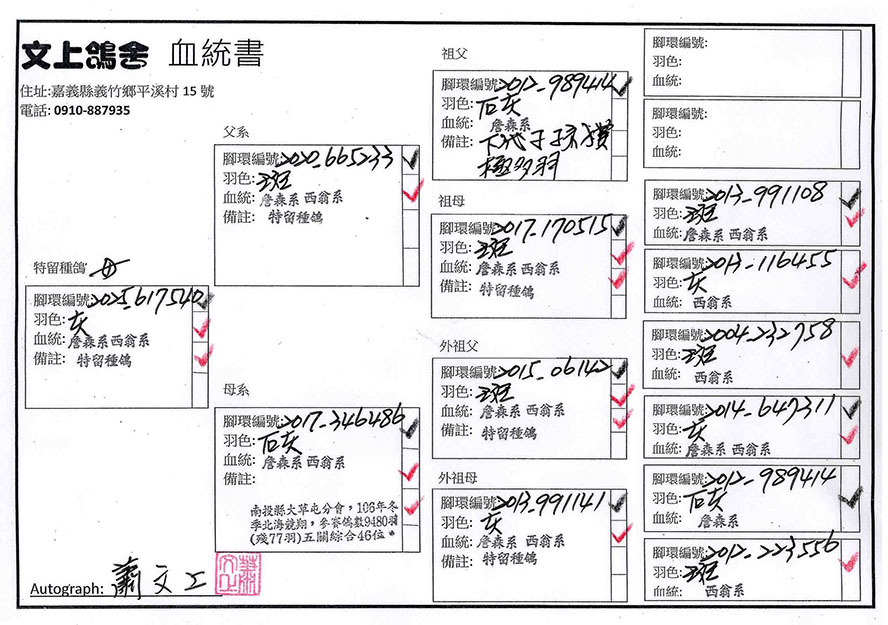 文上鴿舍 血統書
住址:嘉義縣義竹鄉平溪村 15 號
電話: 0910-887935
特留種鴿 母
腳環編號:2025-617540
羽色: 灰
血統: 詹森系西翁系
備註: 特留種鴿
父系
腳環編號:2020-665233
羽色: 斑
血統: 詹森系 西翁系
備註: 特留種鴿
母系
腳環編號:2017-346486
羽色: 石灰
血統: 詹森系 西翁系
備註:
南投縣大草屯分會，106年冬
季北海競翔，參賽鴿數9480羽
(殘77羽)五關綜合46位。
祖父
腳環編號:2012-989414
羽色: 石灰
血統: 詹森系
備註: 下代子孫獲
極多羽
祖母
腳環編號:2017-170515
羽色: 斑
血統: 詹森系西翁系
備註: 特留種鴿
外祖父
腳環編號:2015-06142
羽色: 斑
血統: 詹森系 西翁系
備註: 特留種鴿
外祖母
腳環編號:2013-991141
羽色: 灰
血統: 詹森系 西翁系
備註: 特留種鴿
腳環編號:
羽色:
血統:
腳環編號:
羽色:
血統:
腳環編號:2013-991108
羽色: 斑
血統: 詹森系 西翁系
腳環編號:2013-116455
羽色: 灰
血統: 西翁系
腳環編號:2004-232758
羽色: 斑
血統: 西翁系
腳環編號:2014-647311
羽色: 灰
血統: 詹森系 西翁系
腳環編號:2012-989414
羽色: 石灰
血統: 詹森系
腳環編號:2012-223556
羽色: 斑
血統: 西翁系
Autograph: 蕭文上